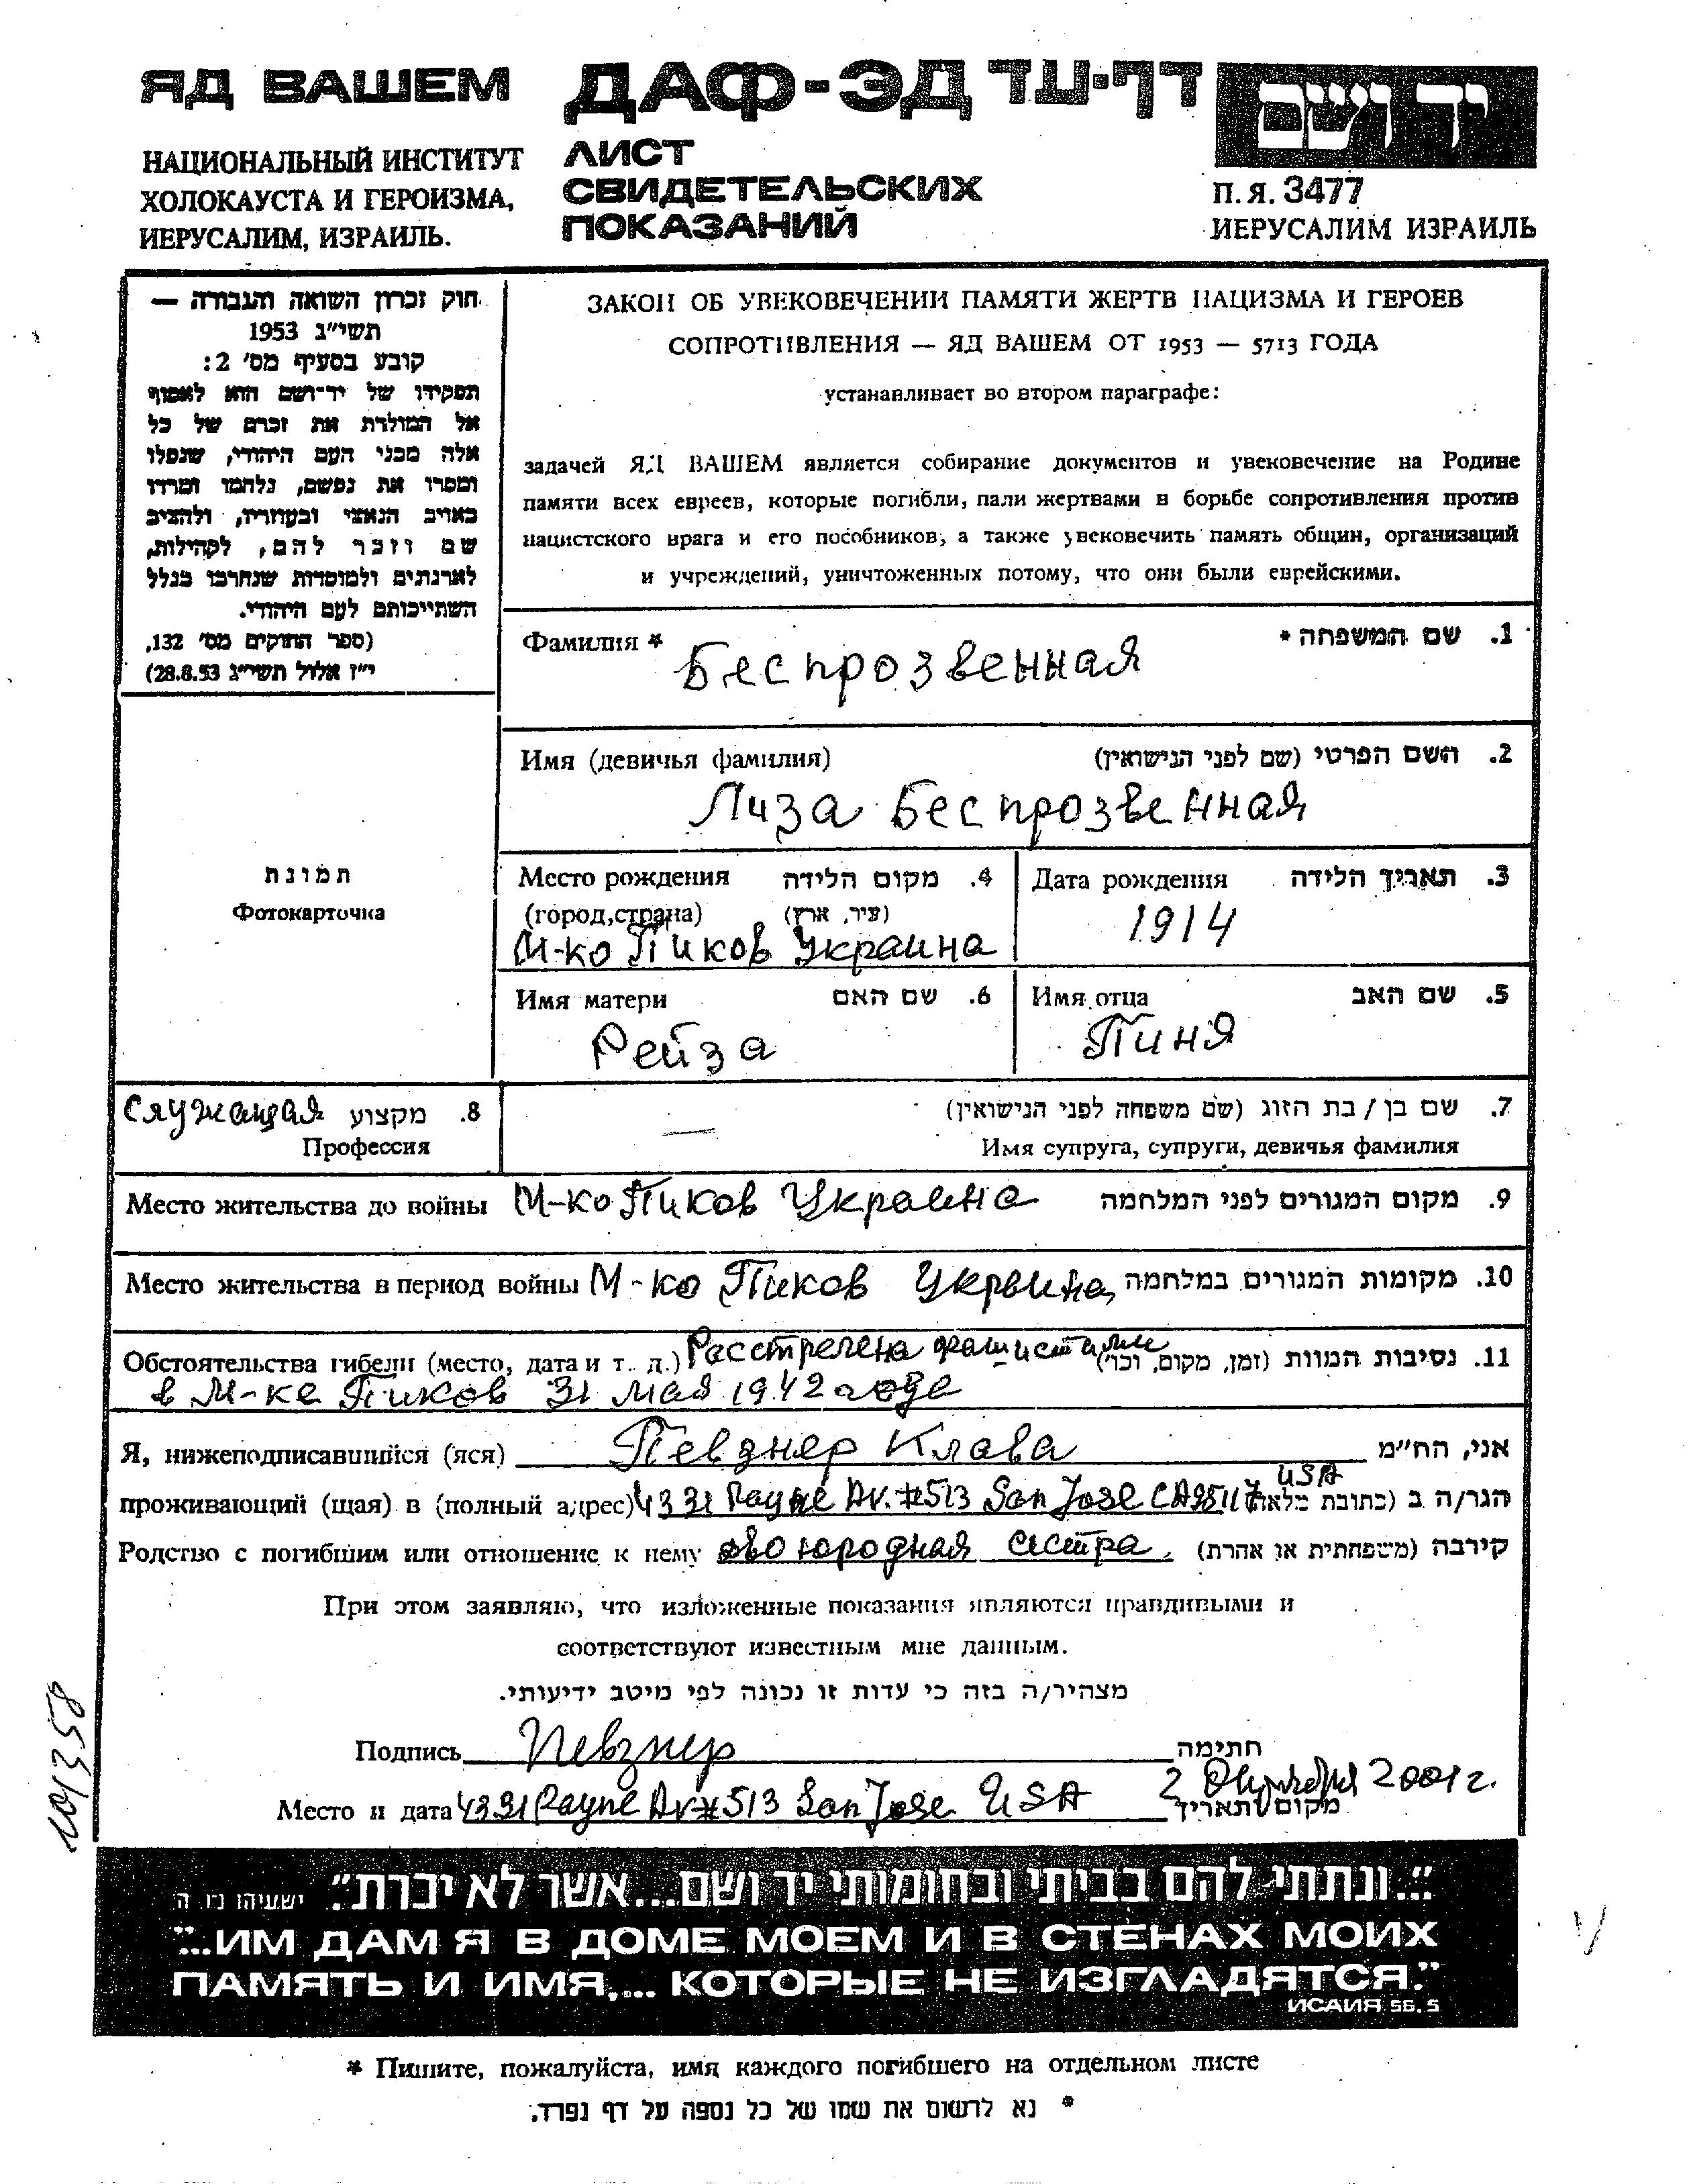 ЯД ВАШЕМ
НАЦИОНАЛЬНЫЙ ИНСТИТУТ
ХОЛОКАУСТА И ГЕРОИЗМА,
ИЕРУСАЛИМ, ИЗРАИЛЬ.
ДАФ-ЭД דף-עד
ЛИСТ
СВИДЕТЕЛЬСКИХ
ПОКАЗАНИЙ
יד ושם
П.Я. 3477
ИЕРУСАЛИМ ИЗРАИЛЬ
חוק זכרון השואה והגבורה —
תשי״ג 1953
קובע בסעיף מס׳ 2:
תפקידו של יד־ושם הוא לאסוף
אל המולדת את זכרם של כל
אלה מבני העם היהודי, שנפלו
ומסרו את נפשם, נלחמו ומרדו
באויב הנאצי ובעוזריו, ולהציב
שם וזכר להם, לקהילות,
לארגונים ולמוסדות שנחרבו בגלל
השתייכותם לעם היהודי.
(ספר החוקים מס׳ 132,
י״ז אלול תשי״ג 28.8.53)
ЗАКОН ОБ УВЕКОВЕЧЕНИИ ПАМЯТИ ЖЕРТВ НАЦИЗМА И ГЕРОЕВ
СОПРОТИВЛЕНИЯ — ЯД ВАШЕМ ОТ 1953 — 5713 ГОДА
устанавливает во втором параграфе:
задачей ЯД ВАШЕМ является собирание документов и увековечение на Родине
памяти всех евреев, которые погибли, пали жертвами в борьбе сопротивления против
нацистского врага и его пособников, а также увековечить память общин, организаций
и учреждений, уничтоженных потому, что они были еврейскими.
Фамилия * 1. שם המשפחה *
Беспрозвенная
Имя (девичья фамилия) 2. השם הפרטי (שם לפני הנישואין)
Лиза Беспрозвенная
תמונת
Фотокарточка
Место рождения 4. מקום הלידה
(город,страна) (עיר, ארץ)
М-ко Пиков Украина
Дата рождения 3. תאריך הלידה
1914
Имя матери 6. שם האם
Рейза
Имя отца 5. שם האב
Пиня
Служащая 8. מקצוע
Профессия
7. שם בן / בת הזוג (שם משפחה לפני הנישואין)
— Имя супруга, супруги, девичья фамилия
Место жительства до войны М-ко Пиков Украина 9. מקום המגורים לפני המלחמה
Место жительства в период войны М-ко Пиков Украина 10. מקומות המגורים במלחמה
Обстоятельства гибели (место, дата и т. д.) Расстреляна фашистами 11. נסיבות המוות (זמן, מקום, וכו׳)
в М-ке Пиков 31 мая 1942 годе
Я, нижеподписавшийся (яся) Певзнер Клава אני, הח״מ
USA
проживающий (щая) в (полный адрес) 4331 Payne Av. #513 San Jose CA 95117 הגר/ה ב (כתובת מלאה)
Родство с погибшим или отношение к нему двоюродная сестра. קירבה (משפחתית או אחרת)
При этом заявляю, что изложенные показания являются правдивыми и
соответствуют известным мне данным.
מצהיר/ה בזה כי עדות זו נכונה לפי מיטב ידיעותי.
Подпись Певзнер חתימה
Место и дата 4331 Payne Av # 513 San Jose USA 2 2001 г. מקום ותאריך
101358
״...ונתתי להם בביתי ובחומותי יד ושם...אשר לא יכרת״. ישעיהו נו ה
"...ИМ ДАМ Я В ДОМЕ МОЕМ И В СТЕНАХ МОИХ
ПАМЯТЬ И ИМЯ,... КОТОРЫЕ НЕ ИЗГЛАДЯТСЯ."
ИСАИЯ 56. 5
* Пишите, пожалуйста, имя каждого погибшего на отдельном листе
* נא לרשום את שמו של כל נספה על דף נפרד.